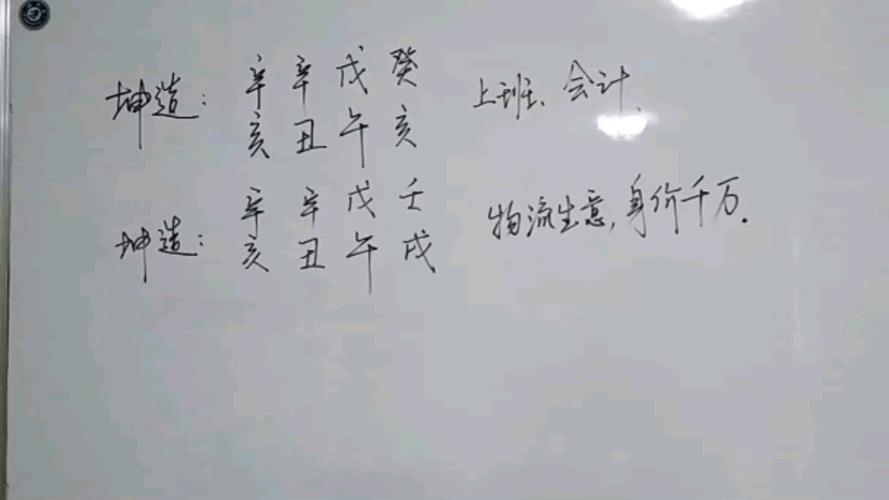 坤造： 辛 辛 戊 癸 上班、会计.
亥 丑 午 亥
坤造： 辛 辛 戊 壬 物流生意，身价千万.
亥 丑 午 戌